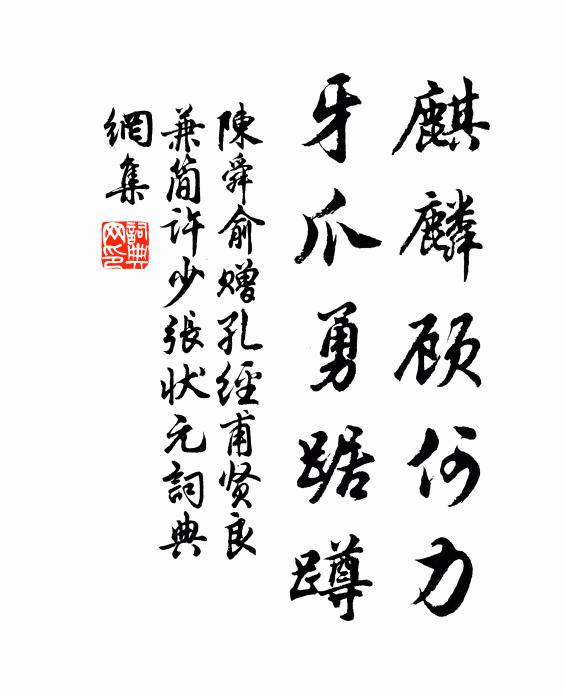 麒麟顾何力
牙爪勇踞蹲
陳舜俞赠孔經甫贤良
兼简許少張状元詞典
網集
詞典网印